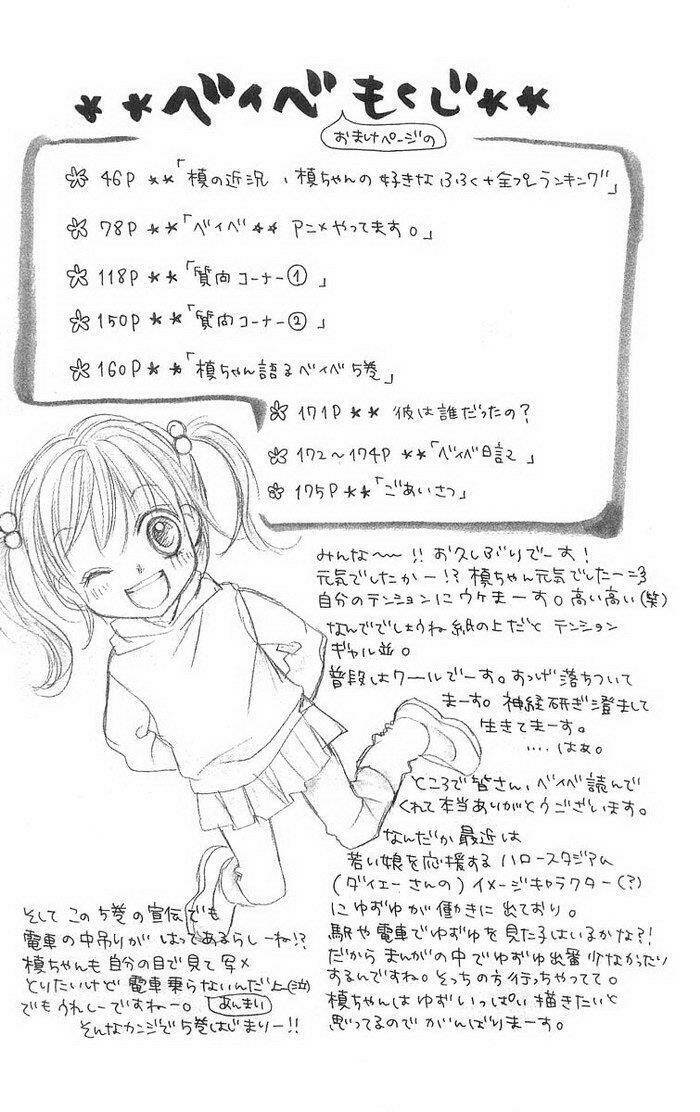 **ベイベもくじ**
おまけページの
46P **「槙の近況、槙ちゃんの好きなふく+全プレランキング」
78P **「ベイベ** アニメやってます。」
118P **「質問コーナー①」
150P **「質問コーナー②」
160P **「槙ちゃん語るベイベ5巻」
171P ** 彼は誰だったの?
172〜174P **「ベイベ日記」
175P **「ごあいさつ」
みんな〜!! お久しぶりでーす!
元気でしたかー!? 槙ちゃん元気でしたー=3
自分のテンションにウケまーす。高い高い(笑)
なんででしょうね 紙の上だと テンション
ギャル並。
普段はクールでーす。すっげ落ちついて
まーす。神経研ぎ澄まして
生きてまーす。
‥‥はぁ。
ところで皆さん、ベイベ読んで
くれて本当ありがとうございます。
なんだか最近は
若い娘を応援する ハロースタジアム
(ダイエーさんの) イメージキャラクター(?)
にゆずゆが働きに出ており。
駅や電車でゆずゆを見た子はいるかな?!
だから まんがの中でゆずゆ出番 少なかったり
するんですね。そっちの方行っちゃってて。
槙ちゃんは ゆずいっぱい描きたいと
思ってるので がんばりまーす。
そして この5巻の宣伝でも
電車の中吊りが はってあるらしーね!?
槙ちゃんも 自分の目で見て 写メ
とりたいけど 電車乗らないんだ上(泣)
でも うれしーですねー。 あんまい
そんなカンジで5巻はじまりー!!